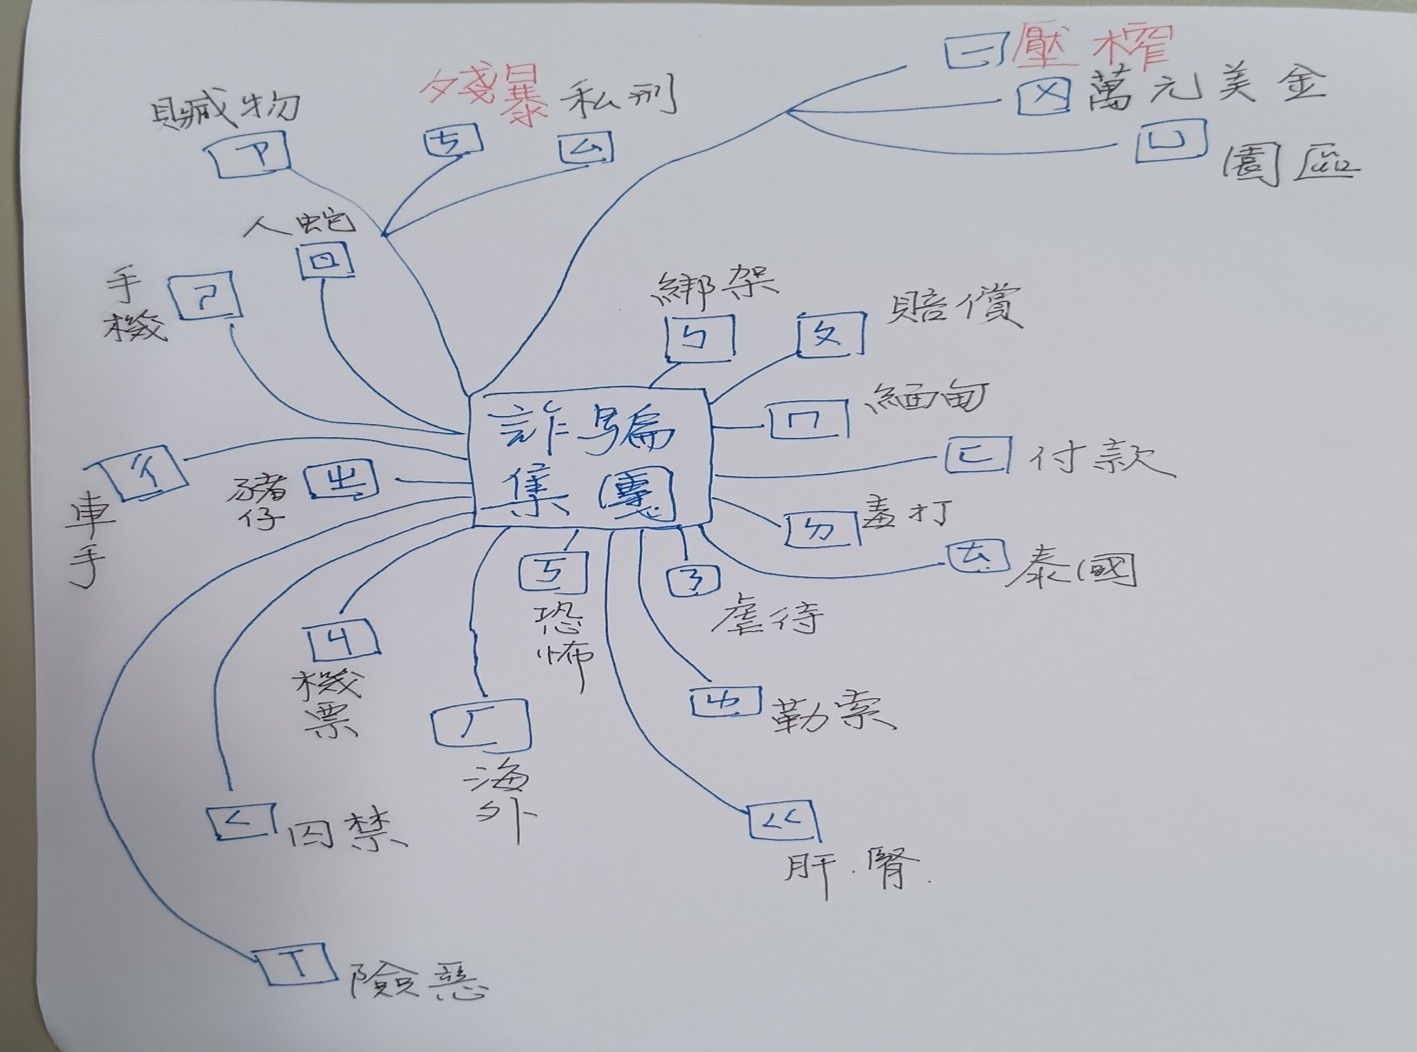 ㄧ 壓榨
ㄨ 萬元美金
ㄩ 園區
殘暴
ㄘ
私刑
ㄙ
贓物
ㄗ
人蛇
ㄖ
手機
ㄕ
綁架
ㄅ
ㄆ 賠償
ㄇ 緬甸
ㄈ 付款
詐騙
集團
車手
ㄔ
豬仔
ㄓ
ㄉ 毒打
ㄊ 泰國
ㄎ
恐怖
ㄋ
虐待
ㄐ
機票
ㄌ 勒索
ㄏ
海外
ㄑ 囚禁
ㄍ
肝.腎.
ㄒ 險惡